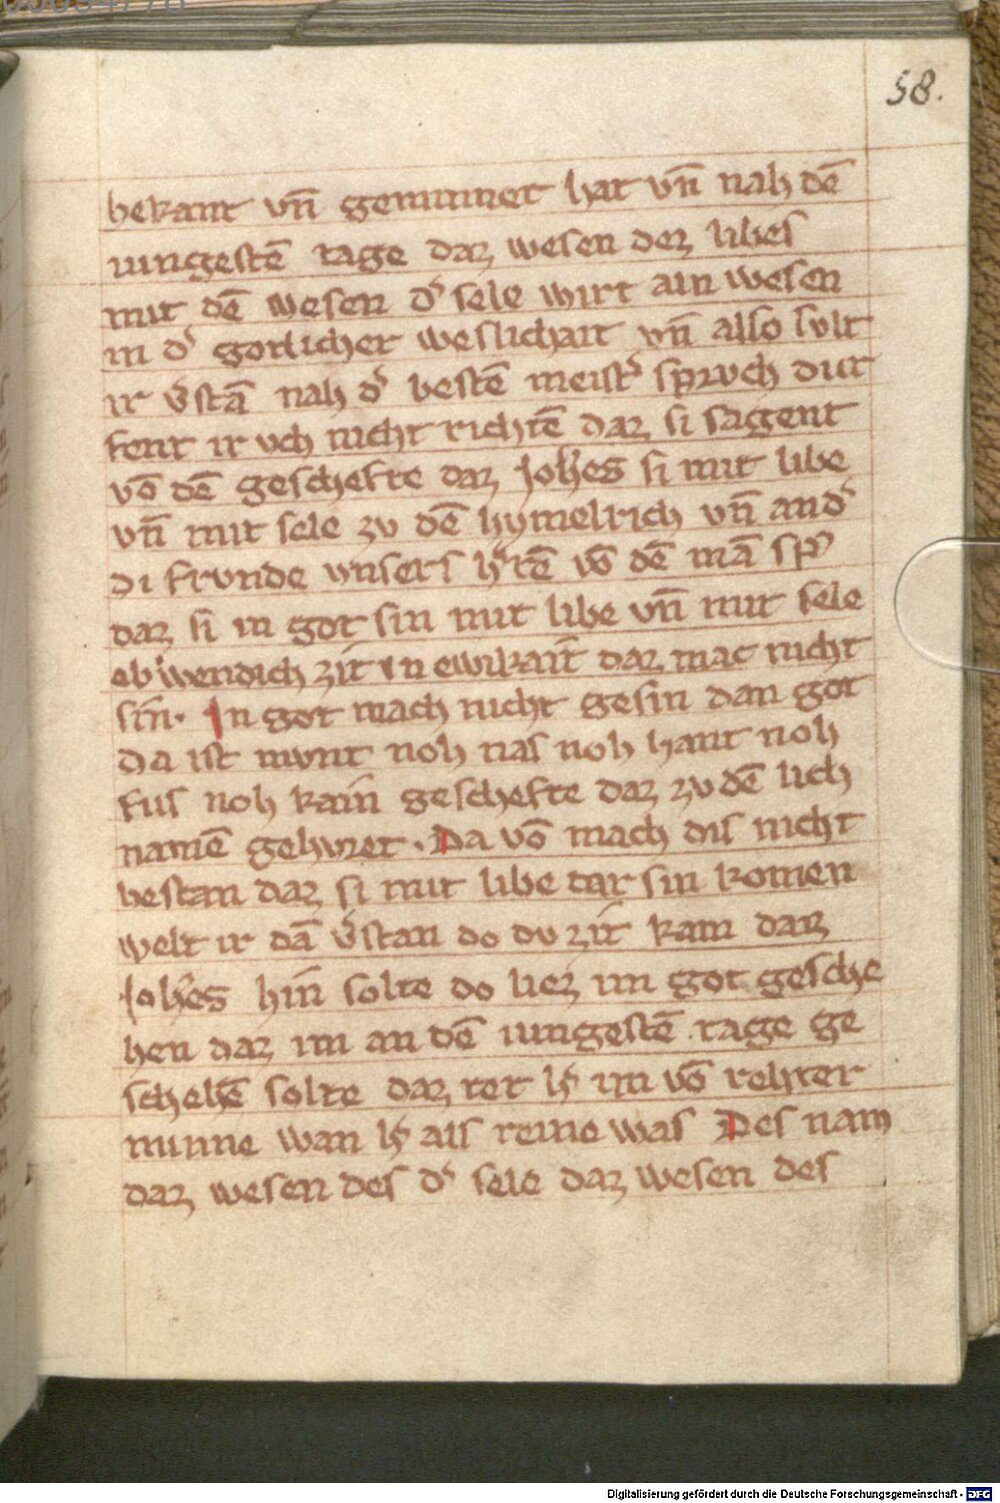 58.
bekant vn̄ geminnet hat vn̄ nah dē
iungestē tage daz wesen dez libes
mit dē wesen d' sele wirt ain wesen
in d' gotlicher weslichait vn̄ also svlt
ir v'stā nah d' bestē meist' sprvch dur
fent ir vch nicht richtē daz si sagent
vō dē geschefte daz Joh̄es si mit libe
vn̄ mit sele zv dē hymelrich vn̄ and'
di frvnde vnsers h'rē vō dē mā sp'
daz si in got sin mit libe vn̄ mit sele
wendich zit in ewikait daz mac nicht
sin. In got mach nicht gesin dan got
da ist mvnt noh nas noh hant noh
fus noh kain geschefte daz zv dē lich
namē gehoret. Da vō mach dis nicht
bestan daz si mit libe dar sin komen
welt ir dā v'stan do dv zit kam daz
Joh̄es hin solte do liez im got gesche
hen daz im an dē iungestē tage ge
schehē solte daz tet h' im vō rehter
minne wan h' als reine was Des nam
daz wesen des d' sele daz wesen des
Digitalisierung gefördert durch die Deutsche Forschungsgemeinschaft - DFG